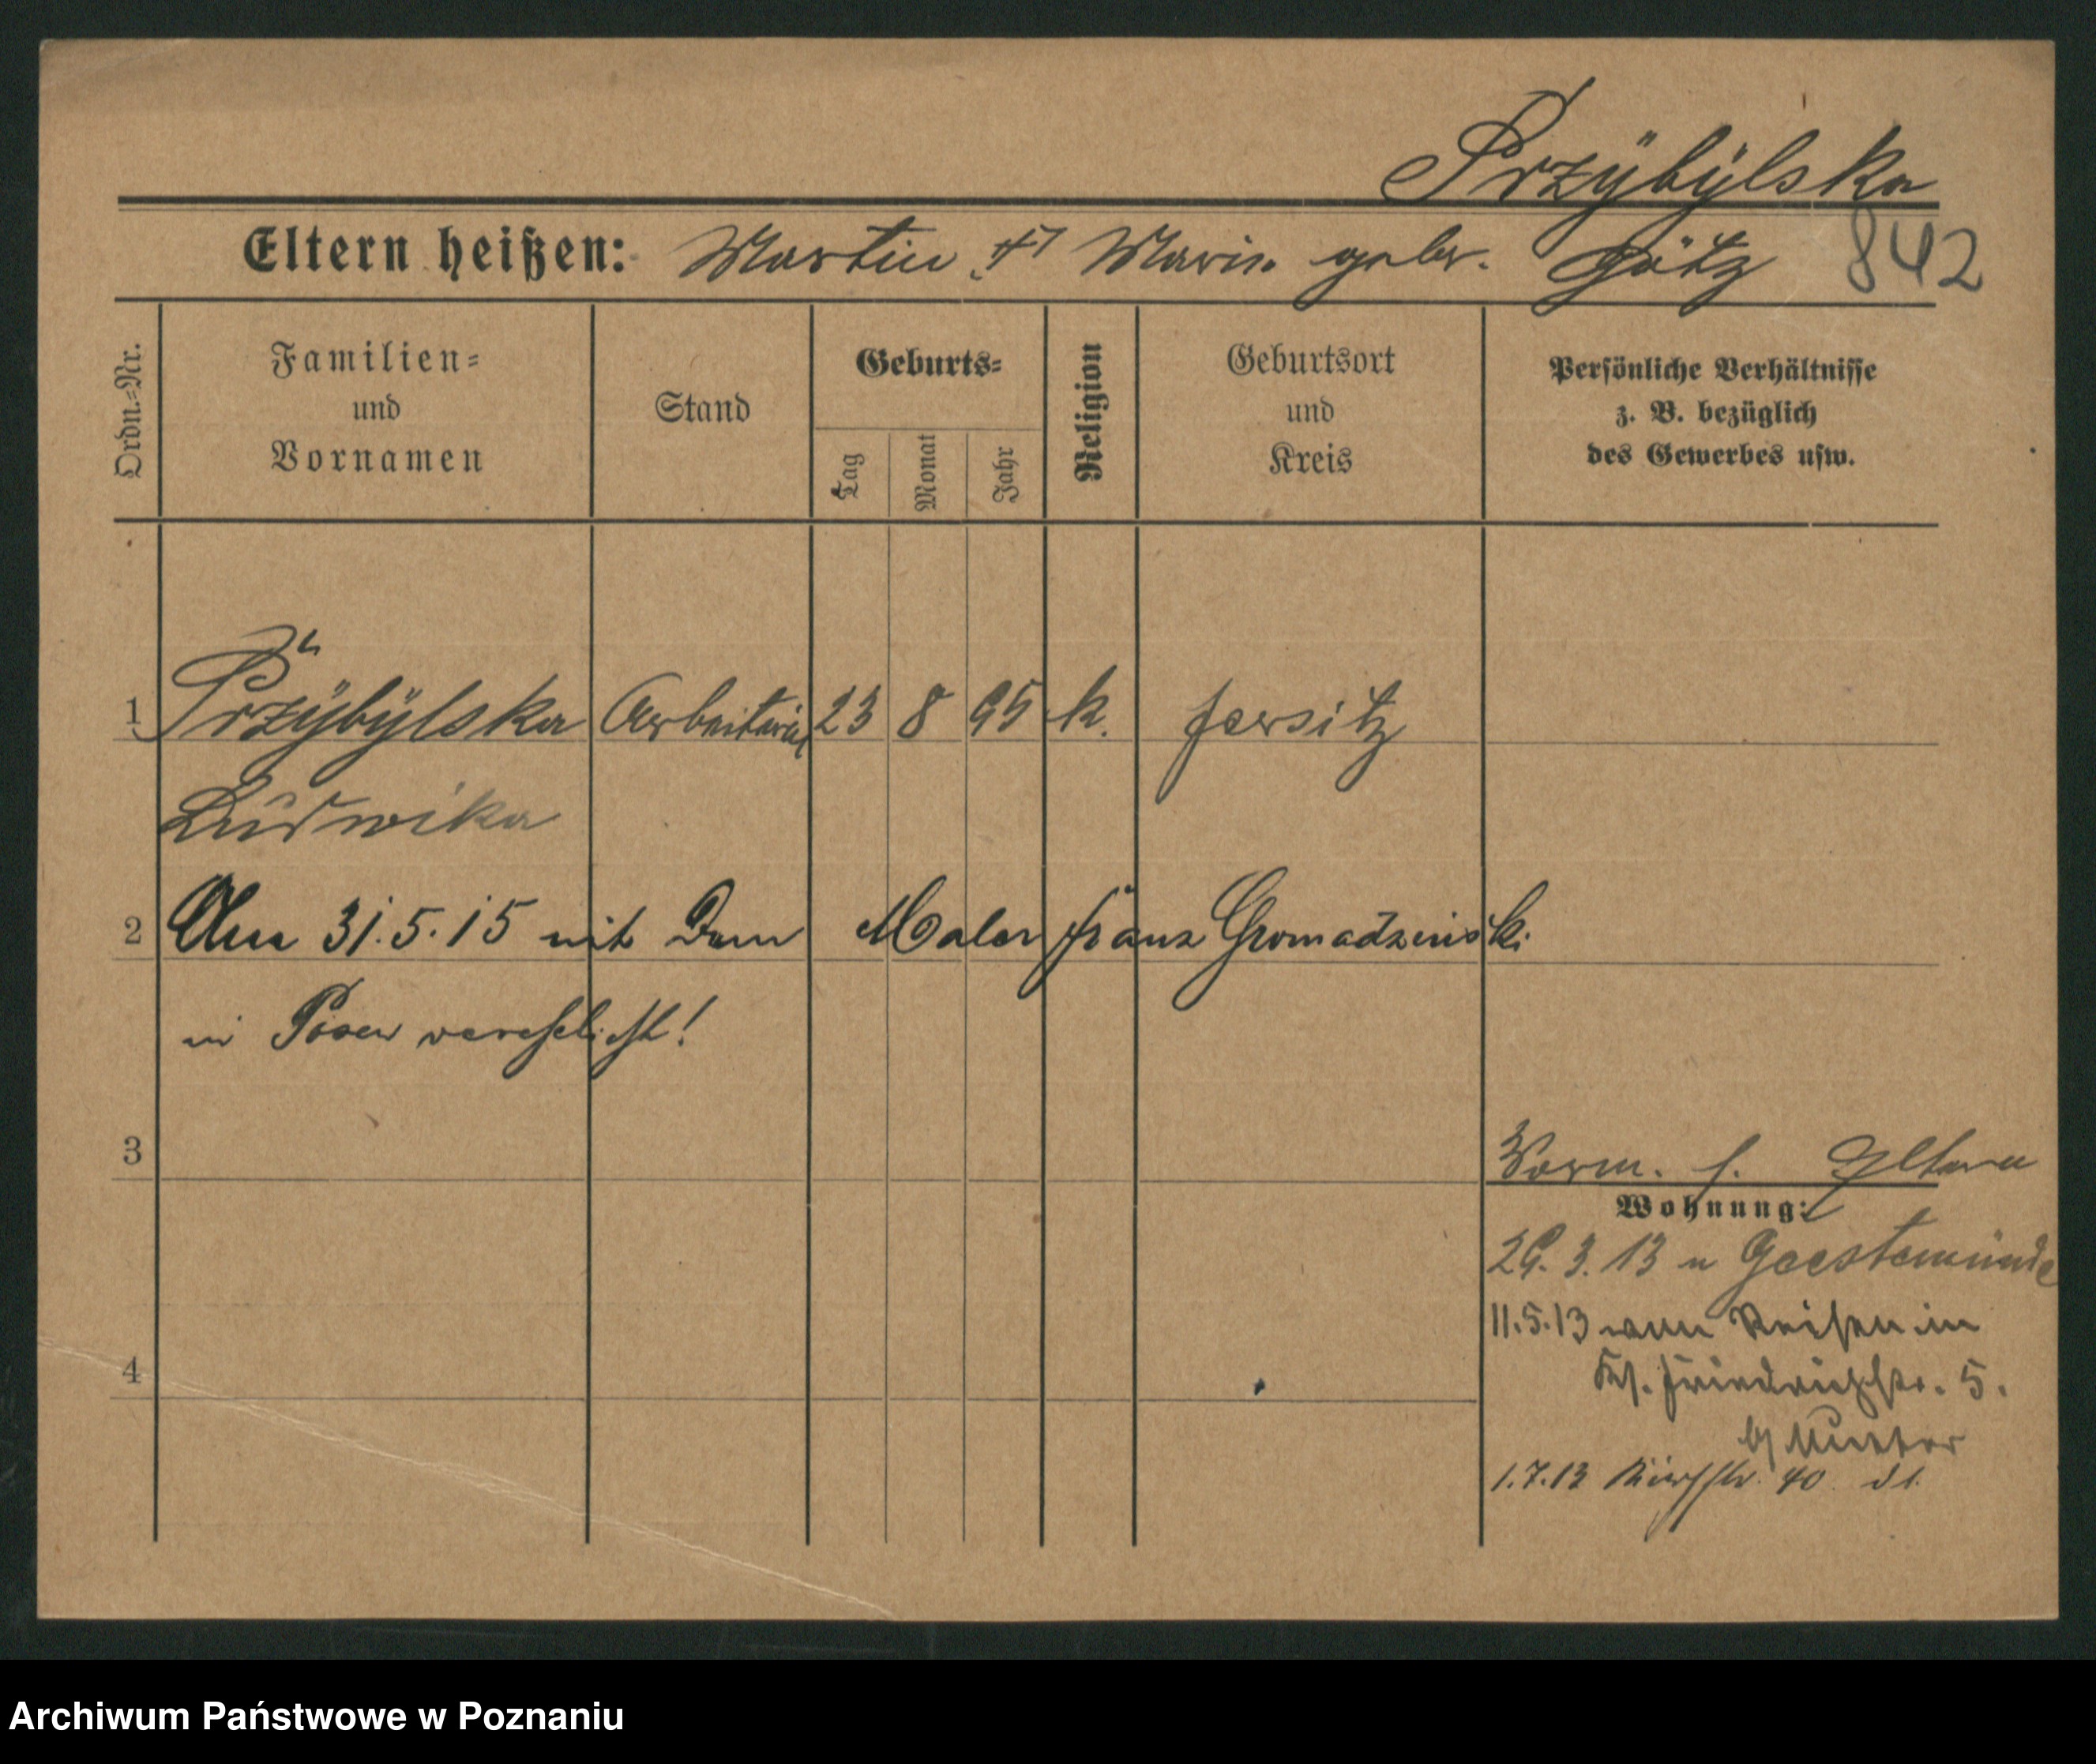 Przÿbÿlska
Eltern heißen: Martin u. Marie gebr. Götz 842
Ordn.-Nr.
Familien-
und
Vornamen
Stand
Geburts-
Tag
Monat
Jahr
Religion
Geburtsort
und
Kreis
Persönliche Verhältnisse
z. B. bezüglich
des Gewerbes usw.
1 Przÿbÿlska Arbeiterin 23 8 95 k. Jersitz
Ludwika
2 Am 31.5.15 mit dem Maler Franz Gromadzinski
in Posen verehelicht!
3
Vorm. s. Eltern
Wohnung:
29. 3. 13 n Geestemünde
11.5.13 von Reisen in
Kl. Friedrichstr. 5.
b/ Mutter
4
1.7.13 40
Archiwum Państwowe w Poznaniu